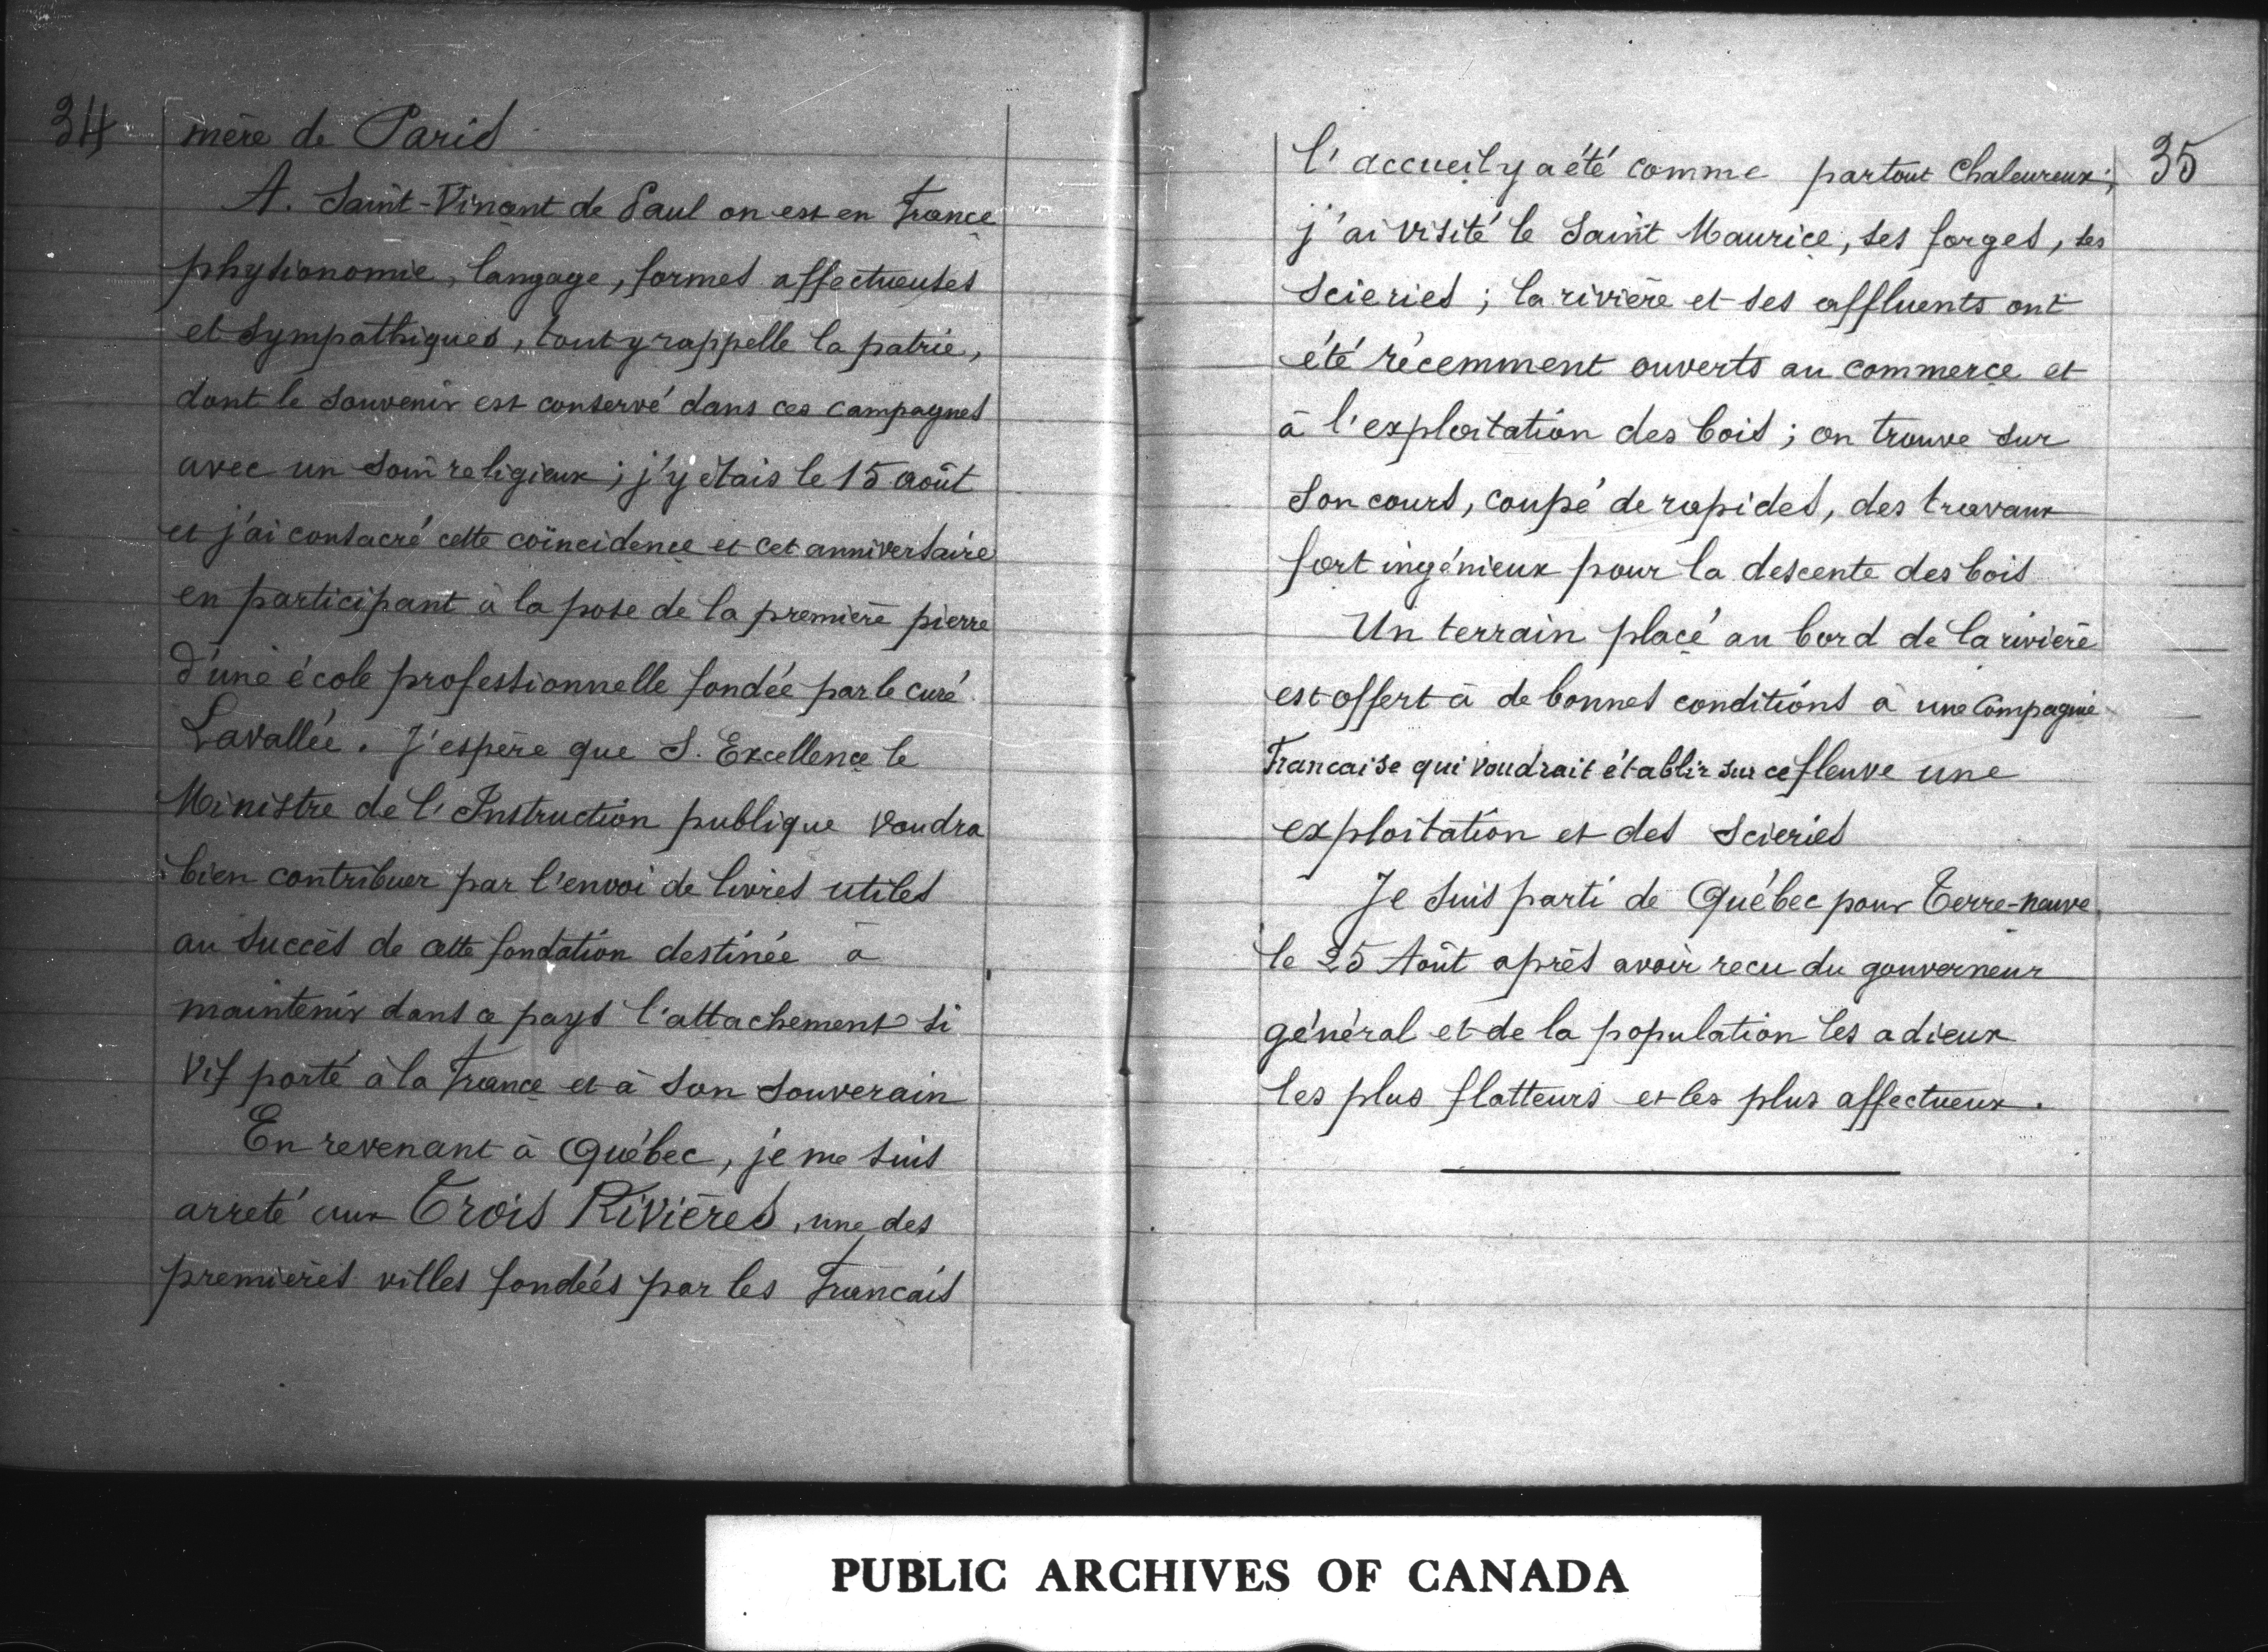 34
mère de Paris
A. Saint-Vincent de Paul on est en France
physionomie, langage, formes affectueuses
et sympathiques, tout y rappelle la patrie,
dont le souvenir est conservé dans ces campagnes
avec un soin religieux ; j'y étais le 15 août
et j'ai consacré cette coïncidence et cet anniversaire
en participant à la pose de la première pierre
d'une école professionnelle fondée par le curé
Lavallée. J'espère que S. Excellence le
Ministre de l'Instruction publique voudra
bien contribuer par l'envoi de livres utiles
au succès de cette fondation destinée à
maintenir dans ce pays l'attachement si
vif porté à la France et à son souverain
En revenant à Québec, je me suis
arreté aux Trois Rivières, une des
premières villes fondées par les Francais
35
l'accueil y a été comme partout chaleureux ;
j'ai visité le Saint Maurice, ses forges, ses
scieries ; la rivière et ses affluents ont
été récemment ouverts au commerce et
à l'exploitation des bois ; on trouve sur
son cours, coupé de rapides, des travaux
fort ingénieux pour la descente des bois
Un terrain placé au bord de la rivière
est offert à de bonnes conditions à une Compagnie
Francaise qui voudrait établir sur ce fleuve une
exploitation et des scieries
Je suis parti de Québec pour Terre-neuve
le 25 Août après avoir recu du gouverneur
général et de la population les adieux
les plus flatteurs et les plus affectueux.
PUBLIC ARCHIVES OF CANADA